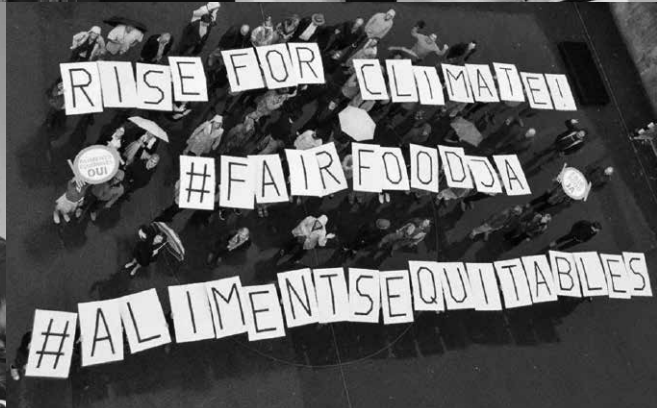 RISE FOR CLIMATE!
#FAIRFOODJA
OUI
#ALIMENTSEQUITABLES